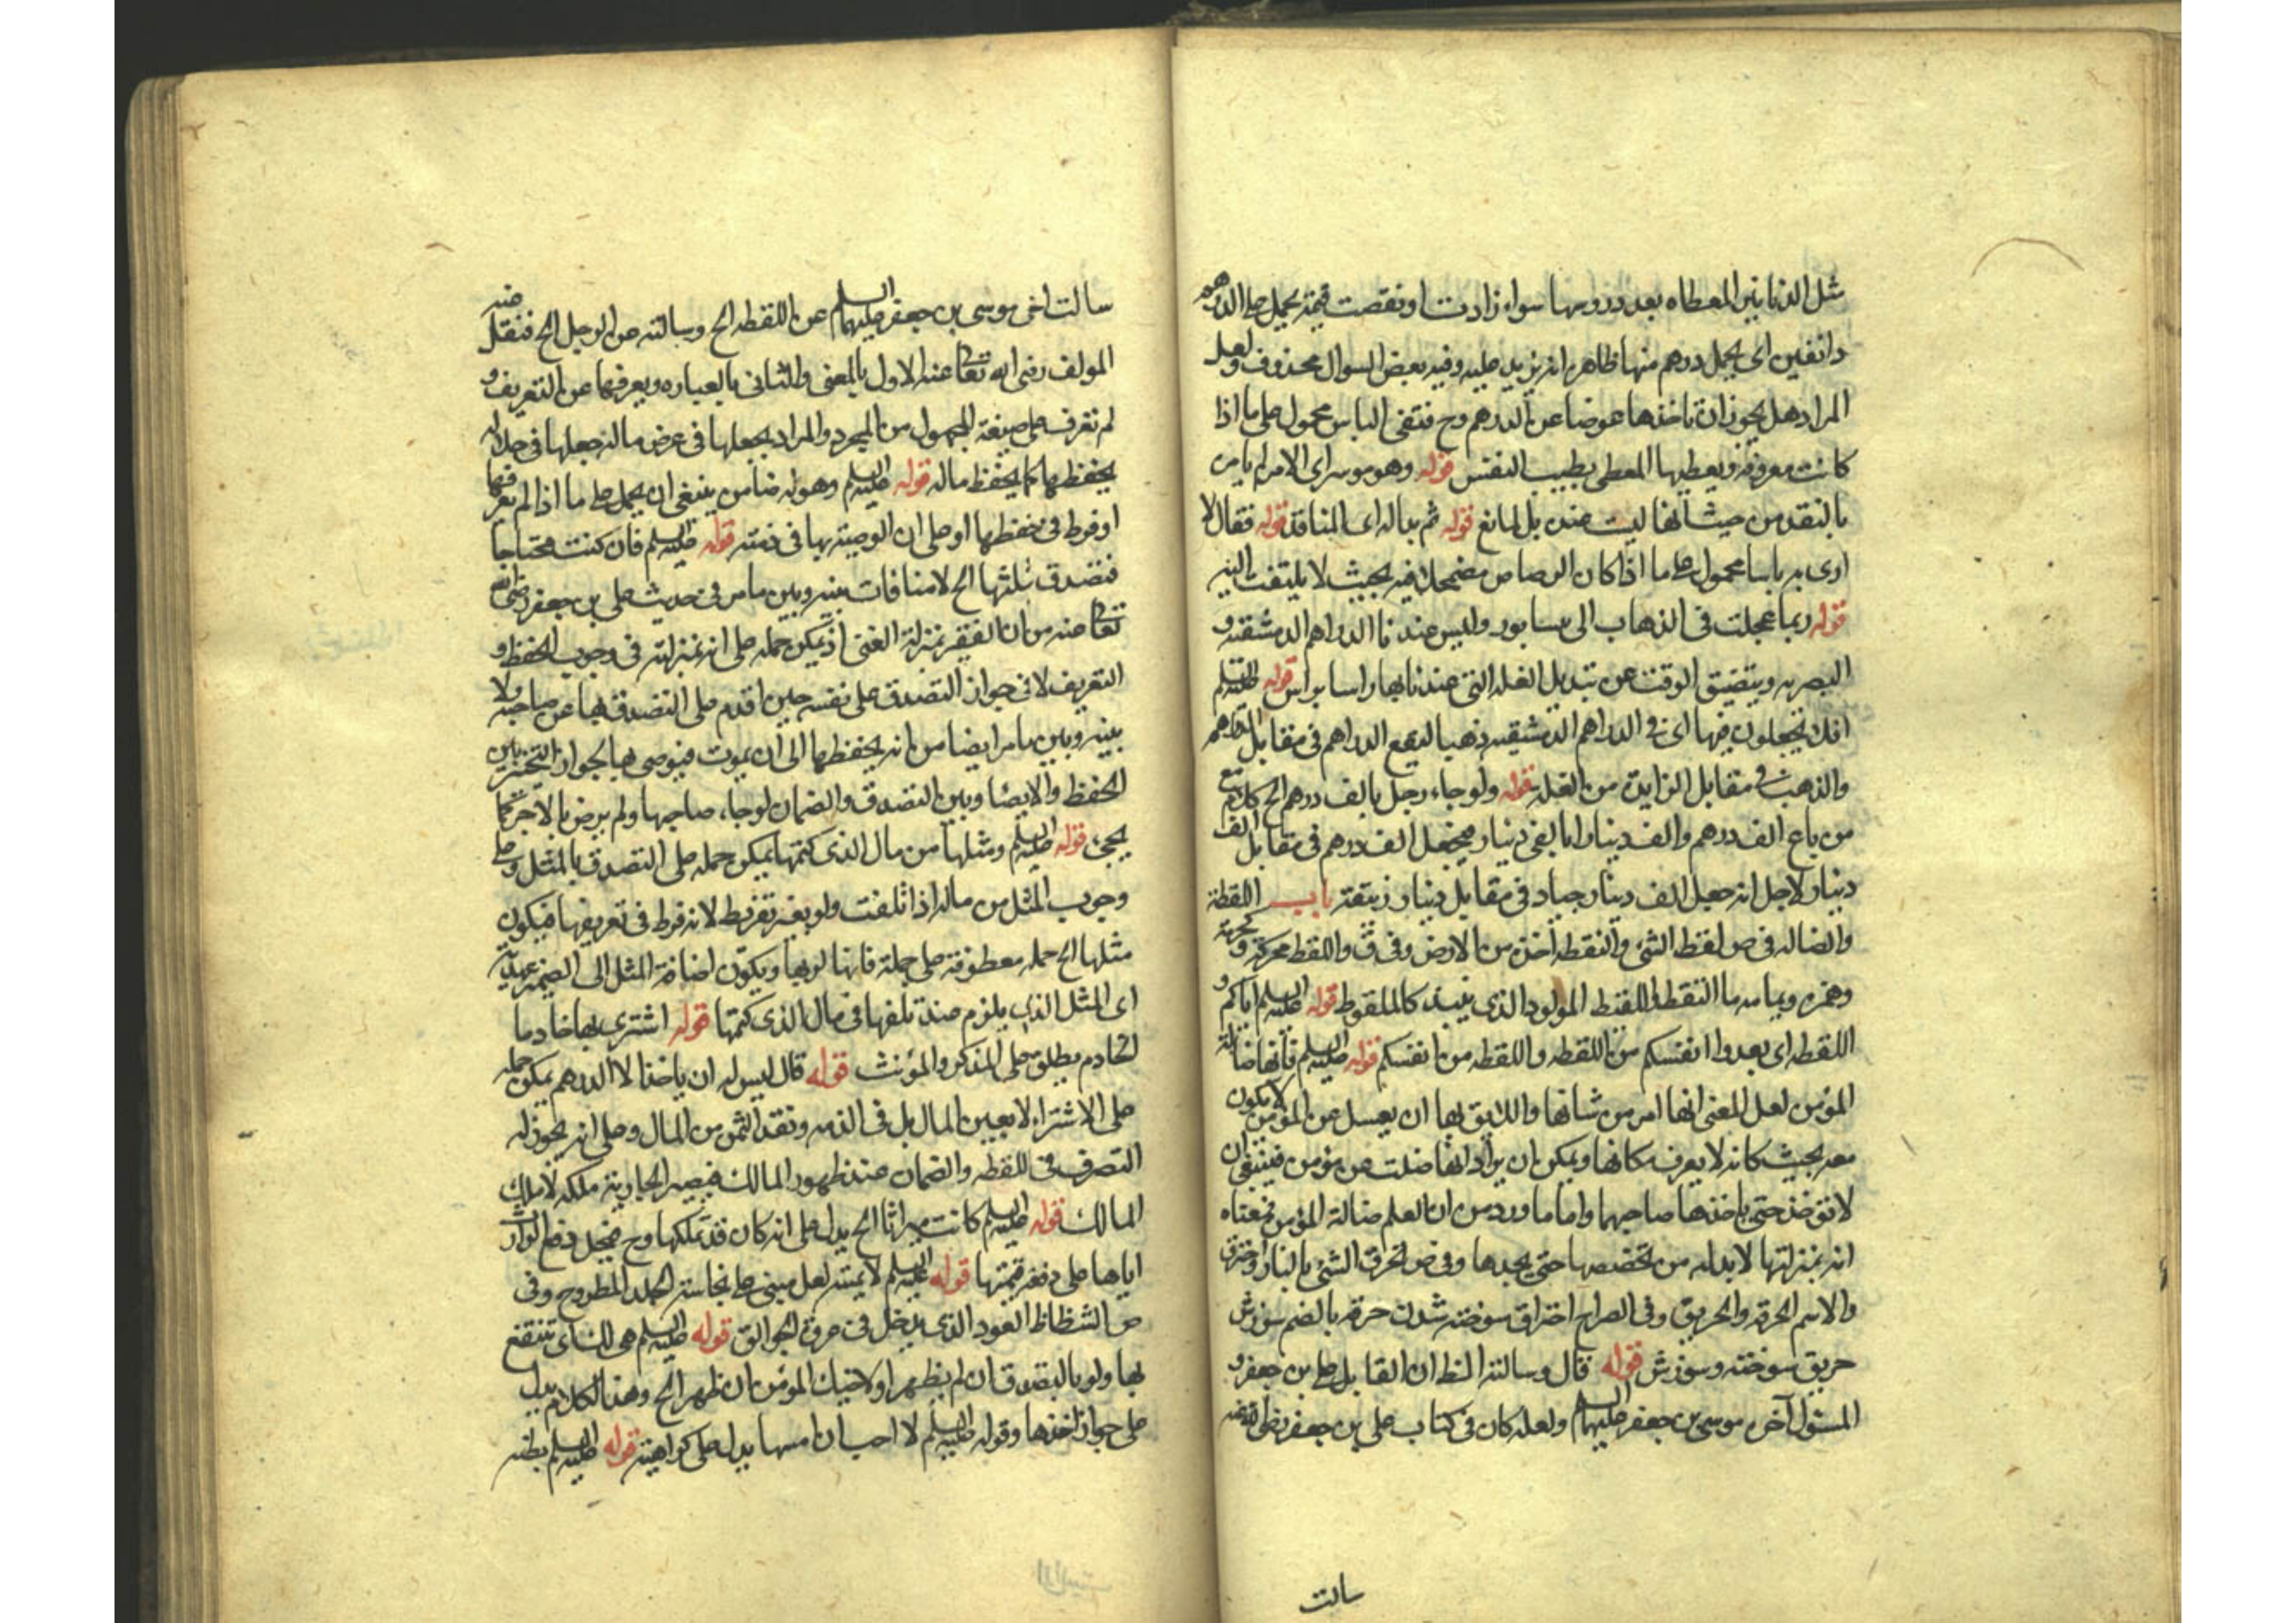 مثل الدنانير المعطاه بعد دورسها سواء زادت او نقصت قيمة يحمل على الدراهم
دانقين اى يحمل درهم منها ظاهرا نه يزيد عليه وفيه بعض السوال محذوف ولعل
المراد هل يجوز ان تاخذها عوضا عن الدرهم وح فنفى الباس محمول على ما اذا
كانت معروفة ويعطيها المعطى بطيب النفس قوله وهو موسر اى الامر
بالنقد من حيث انها ليست عنده بل لمانع قوله ثم بدا له اى المناقد قوله فقال لا
ارى به باسا محمول على ما اذا كان الرصاص مضمحلا فيه بحيث لا يلتفت اليه
قوله ربما عجلت فى الذهاب الى نسابور وليس عندنا الدراهم الدمشقيه و
البصريه ويتضيق الوقت عن تبديل الغله التى عندنا بها قوله عليه السلم
افلا تجعلون فيها اى فى الدراهم الدمشقيه ذهبا ليقع الدراهم فى مقابل الدراهم
والذهب فى مقابل الزايدة من الغله قوله ولو جاء رجل بالف درهم الخ كلام مع
من باع الف درهم والف دينارا بالفى دينار فيجعل الف درهم فى مقابل الف
دينار لاجل انه جعل الف دينار جياد فى مقابل دينار زيتقته باب اللقطة
والضاله فى ص لقط الشئ والتقطه اخذه من الارض وفى ق واللقط محركة و
وهمزه وثمامه ما التقط واللقيط المولود الذى ينبذ كالملقوط قوله عليه السلم اياكم و
اللقطه اى بعدوا انفسكم من اللقطه واللقطه من انفسكم قوله عليه السلم فانها ضالة
المؤمن لعل المعنى انها امر من شانها واللايق بها ان يعسل عن المؤمن لا يكون
معه بحيث كانه لا يعرف مكانها ويمكن ان يراد انها ضلت عن مؤمن فينبغى ان
لا تؤخذ حتى ياخذها صاحبها واما ما ورد من ان العلم ضالة المؤمن فمعناه
انه بمنزلتها لابد له من تخصصها حتى يجدها وفى ص الحرق الشئ بالنار واحترق
والاسم الحرقه والحريق وفى الصراح احتراق سوخته شدن حرقه بالضم سوزش
حريق سوخته وسوزش قوله قال وسالته الظ ان القايل على بن جعفر و
المسئول اخوه موسى بن جعفر عليهما السلم ولعله كان فى كتاب على بن جعفر رضى الله عنه
سالت
سالت اخى موسى بن جعفر عليهما السلم عن اللقطه الخ وسالته عن الرجل الخ فنقل عنه
المولف رضى الله تعالى عنه الاول بالمعنى والثانى بالعباره ويعرفها عن التعريف و
لم تعرف على صيغة المجهول من المجرد والمراد يجعلها فى عرض ماله جعلها فى جملة ماله
يحفظها كما يحفظ ماله قوله عليه السلم وهو له ضامن ينبغى ان يحمل على ما اذا لم يعرفها
او فرط فى حفظها او على ان الوصية بها فى ذمته قوله عليه السلم فان كنت محتاجا
فتصدق بثلثها الخ لا منافات بينه وبين ما مر فى حديث على بن جعفر رضى الله
تعالى عنه من ان الفقير بمنزلة الغنى اذ يمكن حمله على انه بمنزلته فى وجوب الحفظ و
التعريف لا فى جواز التصدق على نفسه حين اقدم على التصدق بها عن صاحبه ولا
بينه وبين ما مر ايضا من انه يحفظها الى ان يموت فيوصى بها لجواز التخيير بين
الحفظ والايصا وبين التصدق والضمان لو جاء صاحبها ولم يرض بالاجر كما
يجئ قوله عليه السلم ومثلها من مال الذى كتمها يمكن حمله على التصدق بالمثل وعلى
وجوب المثل من ماله اذا تلفت ولو بغير تفريط لانه فرط فى تعريفها فيكون
مثلها الخ جمله معطوفة على جملة فانها لربها ويكون اضافة المثل الى الضمير عهدية
اى المثل الذى يلزم عند تلفها فى مال الذى كتمها قوله اشترى بها خادما
الخادم يطلق على المذكر والمؤنث قوله قال ليس له ان ياخذ الا الدراهم يمكن حمله
على الاشتراء لا بعين المال بل فى الذمه ونقد الثمن من المال وعلى انه يجوز له
التصرف فى اللقطه والضمان عند ظهور المالك فيصير الجارية ملكه لا ملك
المالك قوله عليه السلم كانت ميراثا الخ يدل على انه كان قد تملكها وح فيحمل دفع الوارث
اياها على دفع قيمتها قوله عليه السلم لا يمسه لعل مبنى على نجاسة الجلد المطروح وفى
ص الشظاظ العود الذى يدخل فى عروة الجوالق قوله عليه السلم هى لك اى تنتفع
بها ولو بالتصدق ان لم يظهر او لاخيك المؤمن ان ظهر الخ وهذا الكلام يدل
على جواز اخذها وقوله عليه السلم لا احب ان امسها يدل على كراهيته قوله عليه السلم بطنه